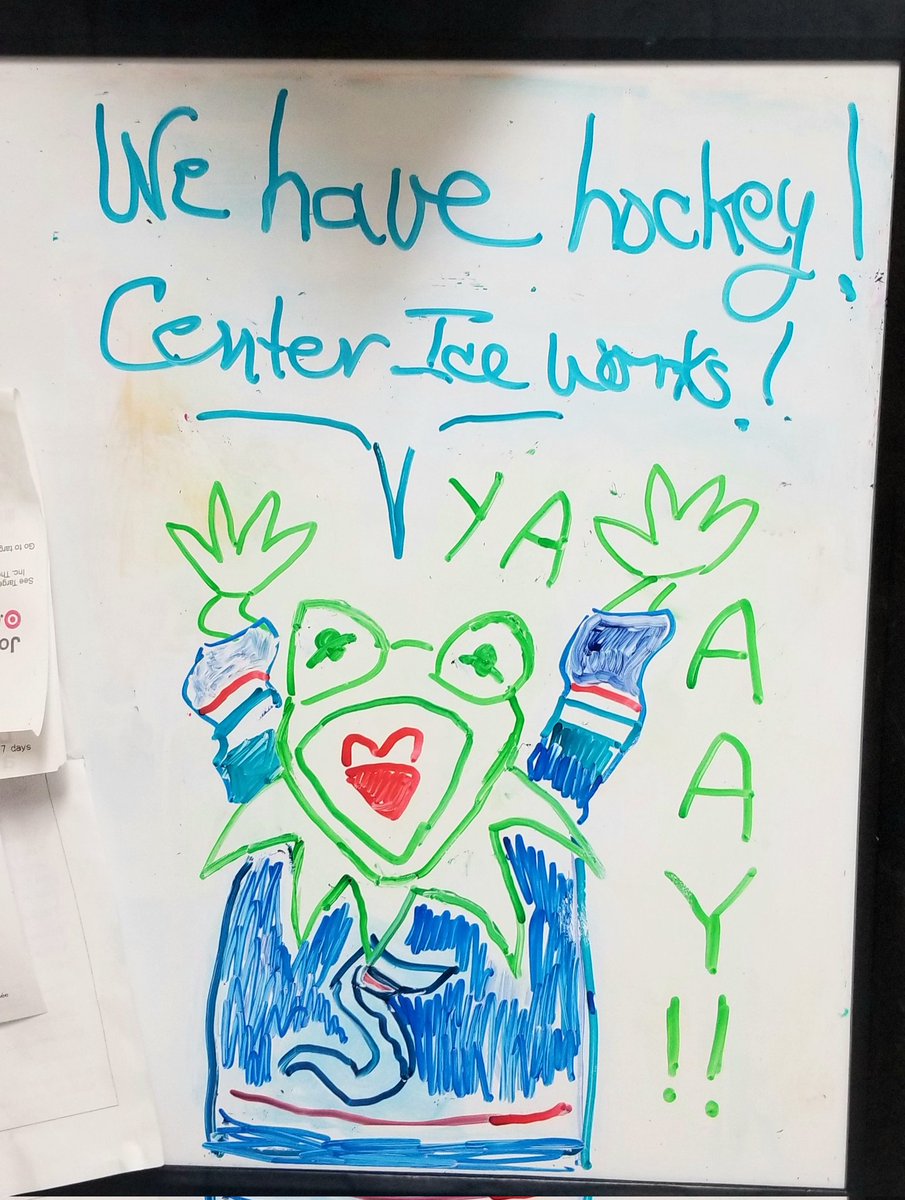 We have hockey!
Center Ice works!
YAAAY!!
Go to targ
See Targe
Inc. Th
Jo
7 days